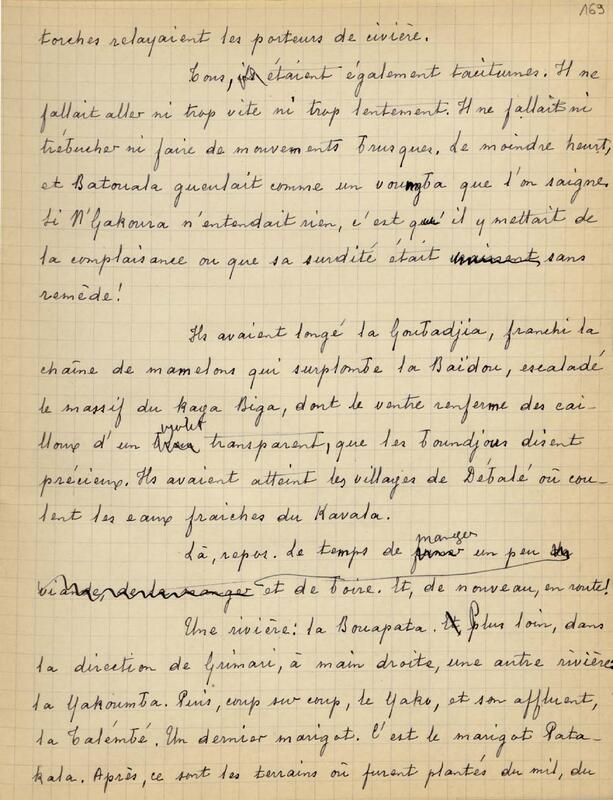 169
torches relayaient les porteurs de civière.
Tous, ils étaient également taciturnes. Il ne
fallait aller ni trop vite ni trop lentement. Il ne fallait ni
trébucher ni faire de mouvements brusques. Le moindre heurt,
et Batouala gueulait comme un voungba que l'on saigne.
Si N'Gakoura n'entendait rien, c'est qu'il y mettait de
la complaisance ou que sa surdité était vraiment sans
remède!
Ils avaient longé la Goutadjia, franchi la
chaîne de mamelons qui surplombe la Baïdou, escaladé
le massif du kaga Biga, dont le ventre renferme des cai-
violet
lloux d'un transparent, que les boundjous disent
précieux. Ils avaient atteint les villages de Débalé où cou-
lent les eaux fraîches du Kavala.
manger
Là, repos. Le temps de un peu
viande, de la manger et de boire. Et, de nouveau, en route!
Une rivière: la Bouapata. Et Plus loin, dans
la direction de Grimari, à main droite, une autre rivière:
la Yakoumba. Puis, coup sur coup, le Yako, et son affluent,
la Talémbé. Un dernier marigot. C'est le marigot Pata-
kala. Après, ce sont les terrains où furent plantés du mil, du